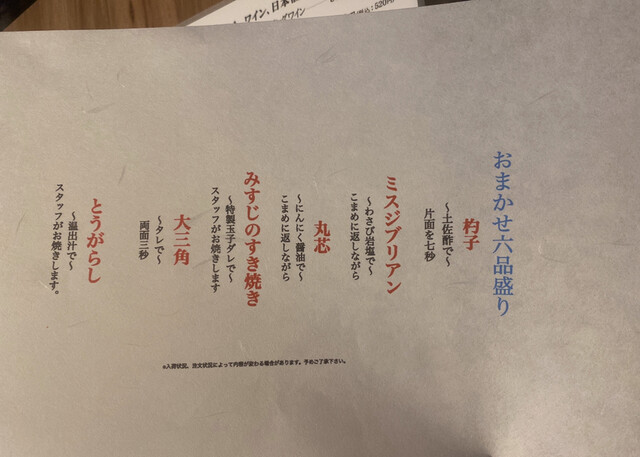 おまかせ六品盛り
杓子
～土佐酢で～
片面を七秒
ミスジブリアン
～わさび岩塩で～
こまめに返しながら
丸芯
～にんにく醤油で～
こまめに返しながら
みすじのすき焼き
～特製玉子ダレで～
スタッフがお焼きします
大三角
～タレで～
両面三秒
とうがらし
～温出汁で～
スタッフがお焼きします。
※入荷状況、注文状況によって内容が変わる場合があります。予めご了承下さい。
ワイン、日本